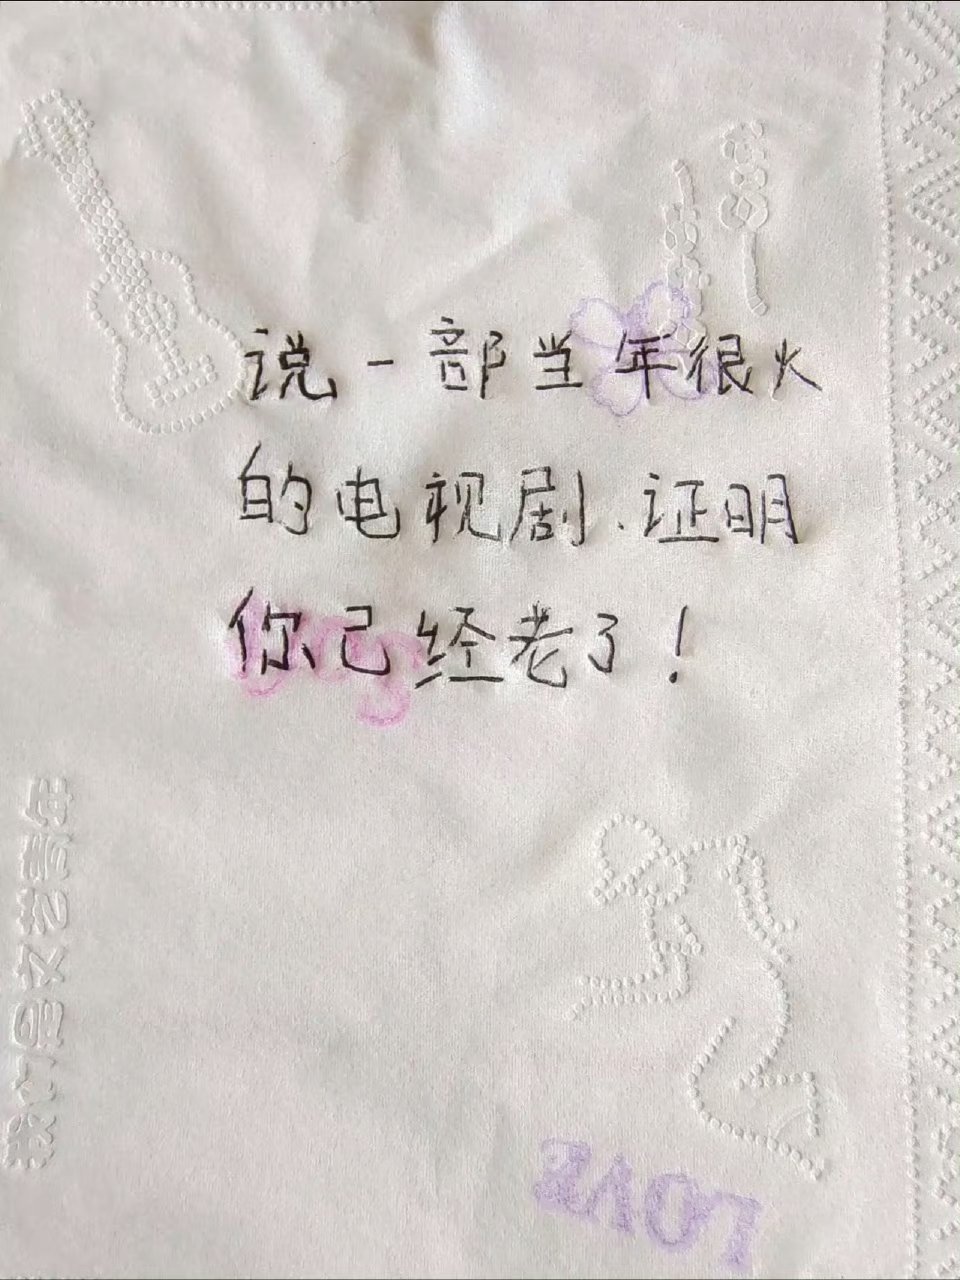 说一部当年很火
的电视剧、证明
你已经老了！
LOVE